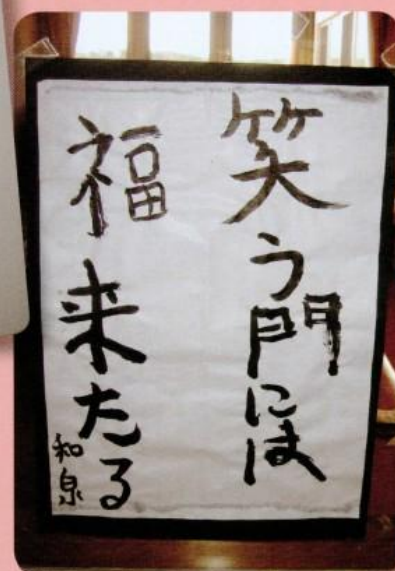 笑う門には
福来たる
和泉